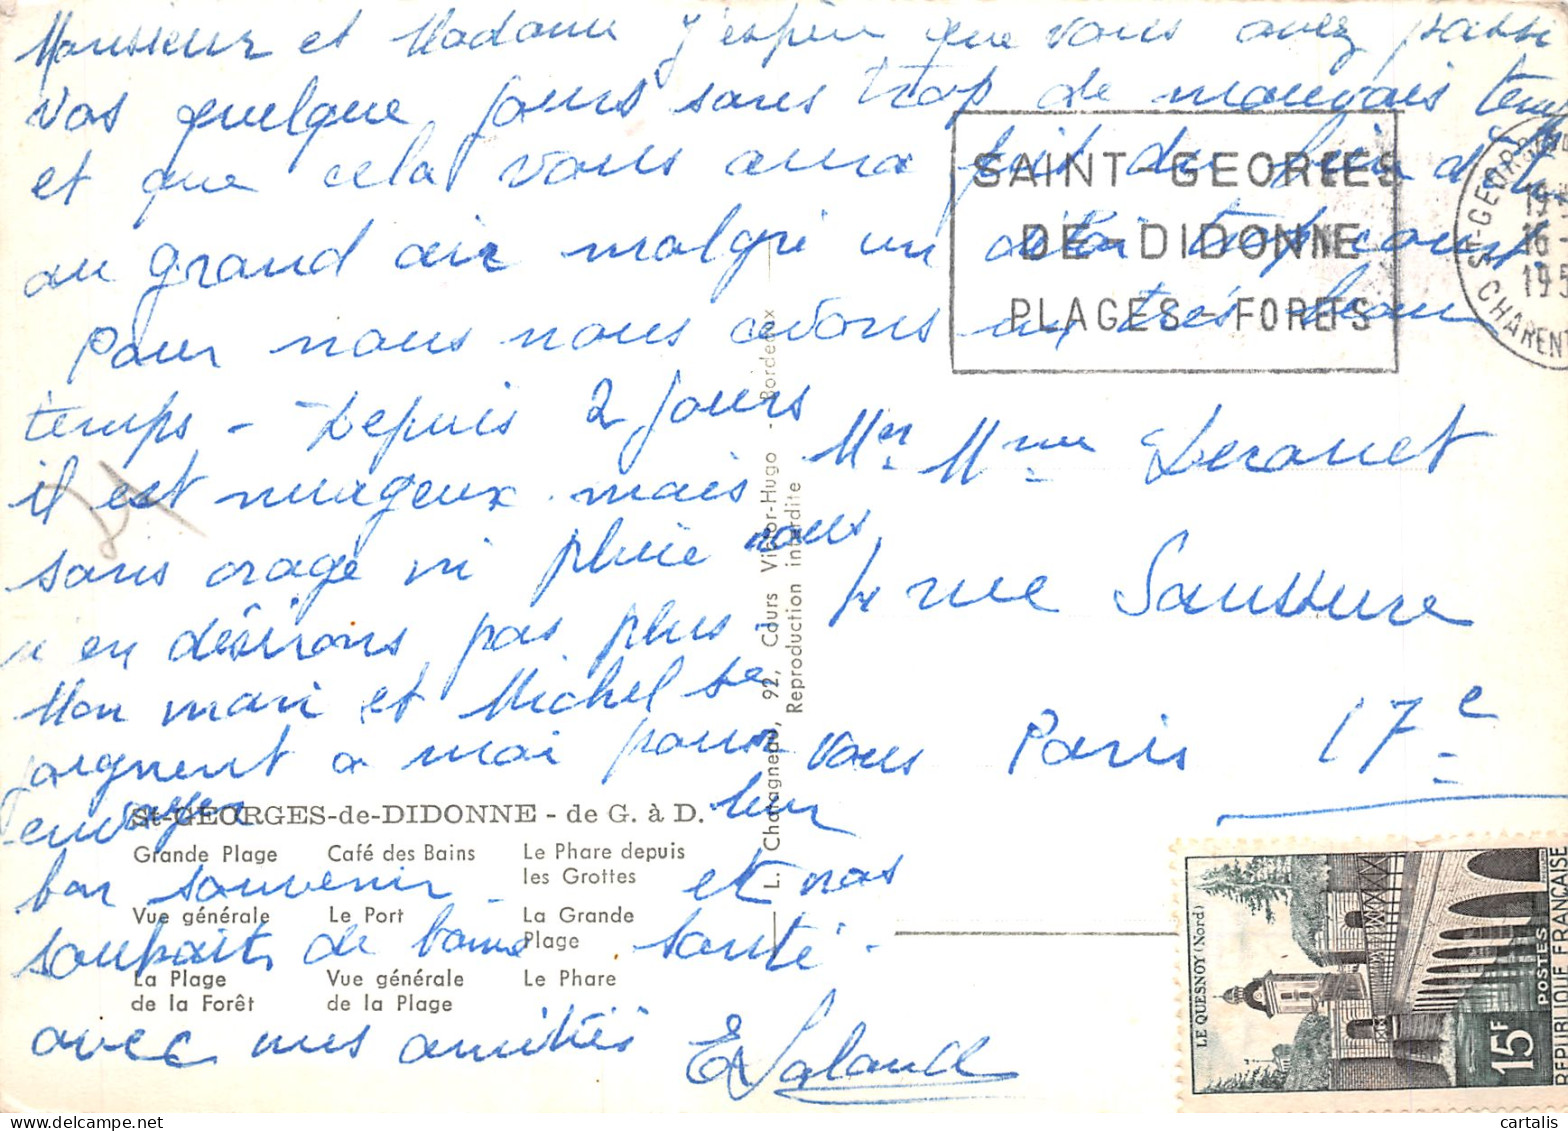 Monsieur et Madame j'espère que vous avez passé
vos quelque jours sans trop de mauvais temps
et que cela vous aura fait du bien d'être
au grand air malgré un délai trop court.
Pour nous nous avons un très beau
temps - Depuis 2 jours
il est nuageux mais
sans orage ni pluie nous
n'en désirons pas plus
Mon mari et Michel se
joignent a moi pour vous
envoyer leur
bon souvenir et nos
souhaits de bonne santé.
avec mes amitiés E Saland
SAINT-GEORGES
DE-DIDONNE
PLAGES-FORETS
ST-GEORGES
16-
195
CHARENT
Mr Mme Leranet
4 rue Saussure
Paris 17e
St-GEORGES-de-DIDONNE - de G. à D.
Grande Plage Café des Bains Le Phare depuis
les Grottes
Vue générale Le Port La Grande
Plage
La Plage Vue générale Le Phare
de la Forêt de la Plage
L. Chatagneau, 92, Cours Victor-Hugo - Bordeaux
Reproduction interdite
LE QUESNOY (Nord)
15F
POSTES
REPUBLIQUE FRANÇAISE
cartalis